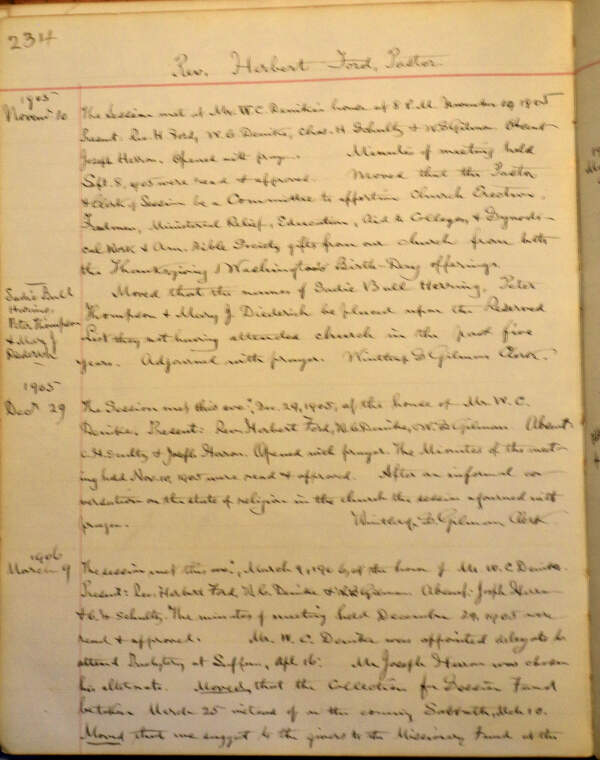 234
Rev. Herbert Ford, Pastor
1905
Novem. 10
The Session met at Mr. W. C. Denike's house at 8 P.M. November 10, 1905
Present: Rev. H. Ford, W. C. Denike, Chas. H. Schultz & W. S. Gilman. Absent
Joseph Herron. Opened with prayer. Minutes of meeting held
Sept. 8, 1905 were read & approved. Moved that the Pastor
& Clerk of Session be a Committee to apportion Church Erection,
Freedmen, Ministerial Relief, Education, Aid to Colleges, & Synodi-
cal Work & Am. Bible Society gifts from our church from both
the Thanksgiving & Washington's Birth-Day offerings.
Sadie Bull
Herring,
Peter Thompson
& Mary J.
Diederich
Moved that the names of Sadie Bull Herring, Peter
Thompson & Mary J. Diederich be placed upon the Reserved
List they not having attended church in the past five
years. Adjourned with prayer. Winthrop S. Gilman Clerk.
1905
Decr 29
The Session met this eve', Dec. 29, 1905, at the house of Mr. W. C.
Denike. Present: Rev. Herbert Ford, W. C. Denike, & W. S. Gilman. Absent:
C. H. Schultz & Joseph Herron. Opened with prayer. The Minutes of the meet-
ing held Nov. 10, 1905 were read & approved. After an informal con-
versation on the state of religion in the church the session adjourned with
prayer. Winthrop S. Gilman, Clerk.
1906
March 9
The session met this eve', March 9, 1906, at the house of Mr. W. C. Denike.
Present: Rev. Herbert Ford, W. C. Denike & W. S. Gilman. Absent: Joseph Herron
& C. H. Schultz. The minutes of meeting held December 29, 1905 were
read & approved. Mr. W. C. Denike was appointed delegate to
attend Presbytery at Suffern, Apl. 16. Mr. Joseph Herron was chosen
his alternate. Moved, that the Collection for Session Fund
be taken March 25 instead of on the coming Sabbath, Mch 10.
Moved that we suggest to the givers to the Missionary Fund at the